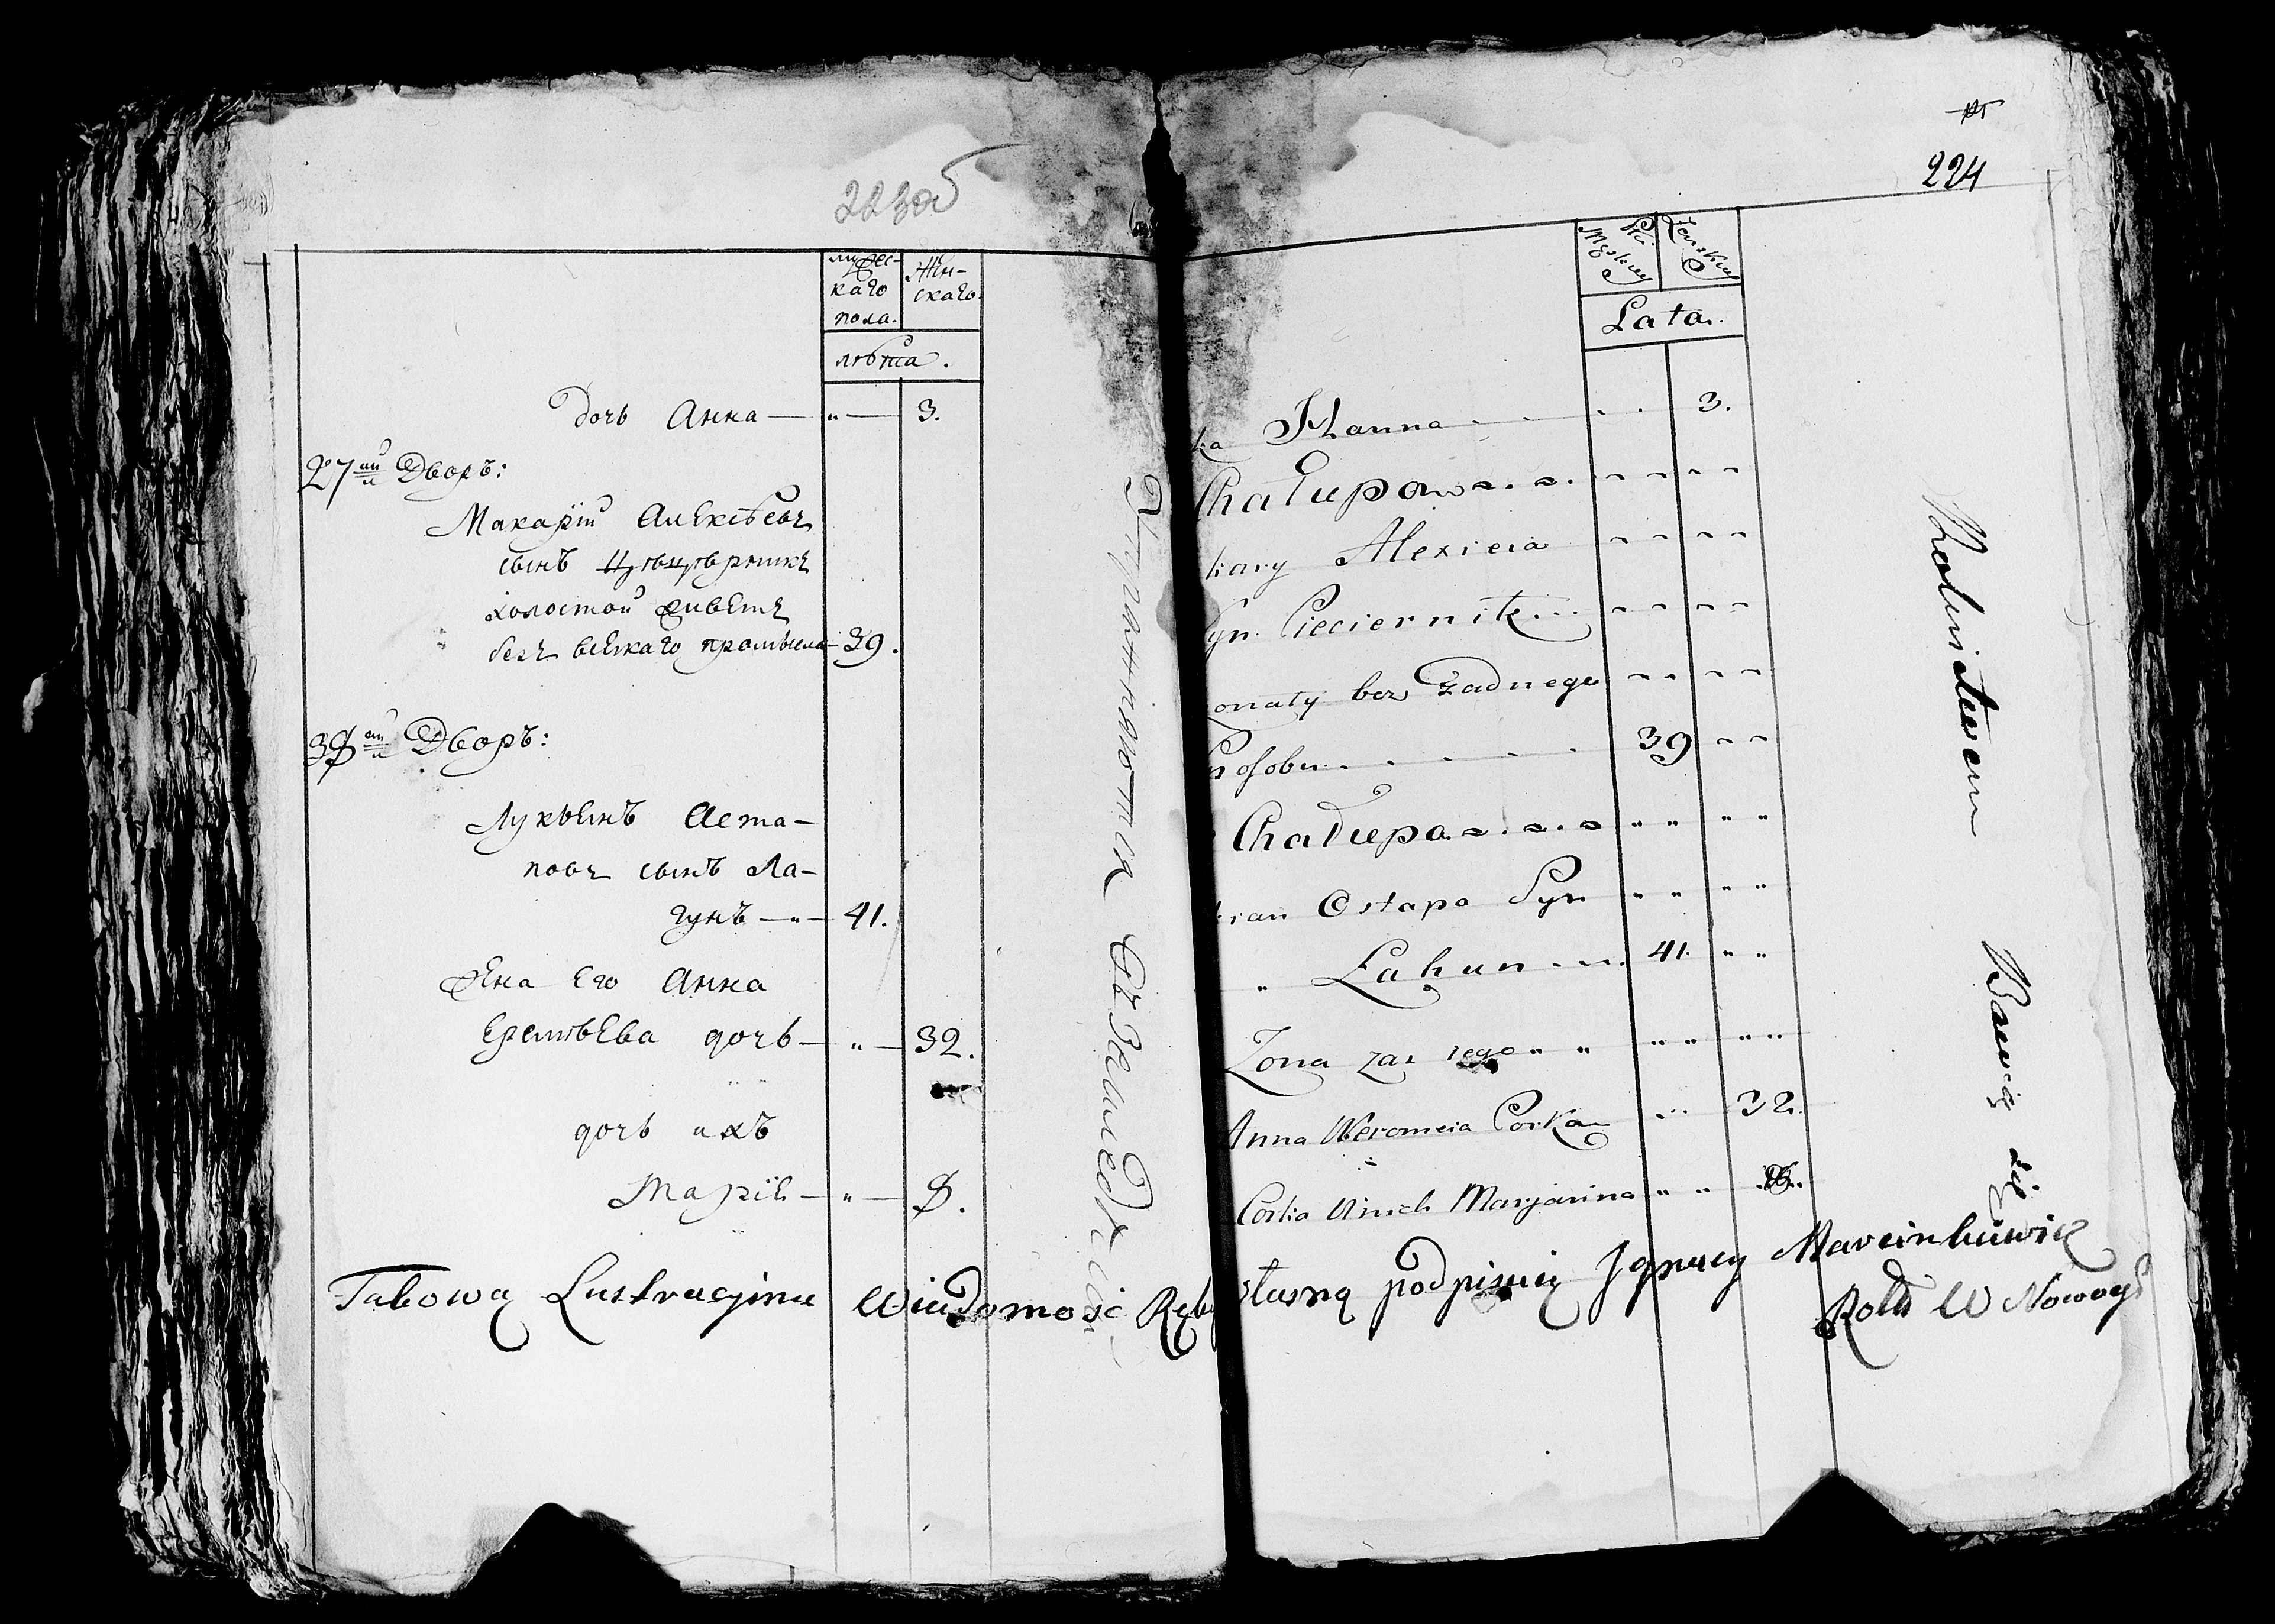 223об
мужес-
каго
пола.
жен-
скаго.
лѣта.
дочь Анна — „ — 3.
27ий Дворъ:
Макарій Алексѣевъ
сынъ
холостой живетъ
безъ всякаго промысла — 39.
Дворъ:
Лукьянъ Аста-
повъ сынъ Ла-
гунъ — „ — 41.
жена его Анна
Еремѣева дочь — „ — 32.
дочь ихъ
Марія — „ — 8.
Упражняются Въ Земледѣліи
224
Męskiey
Żenskiey
Lata.
ka Hanna 3.
Chałupa
kary Alexieia
Syn Cieciernik
onaty bez żadnego
sposobu 39
Chałupa
kian Ostapa Syn
Łahun 41.
Żona zaś iego
Anna Weromeia Corka 32.
Corka Onych Marjanna
Rolnictwem Bawią się
Takową Lustracyjna Wiadomość Ręką własną podpisuię Ignacy Marcinkiewicz